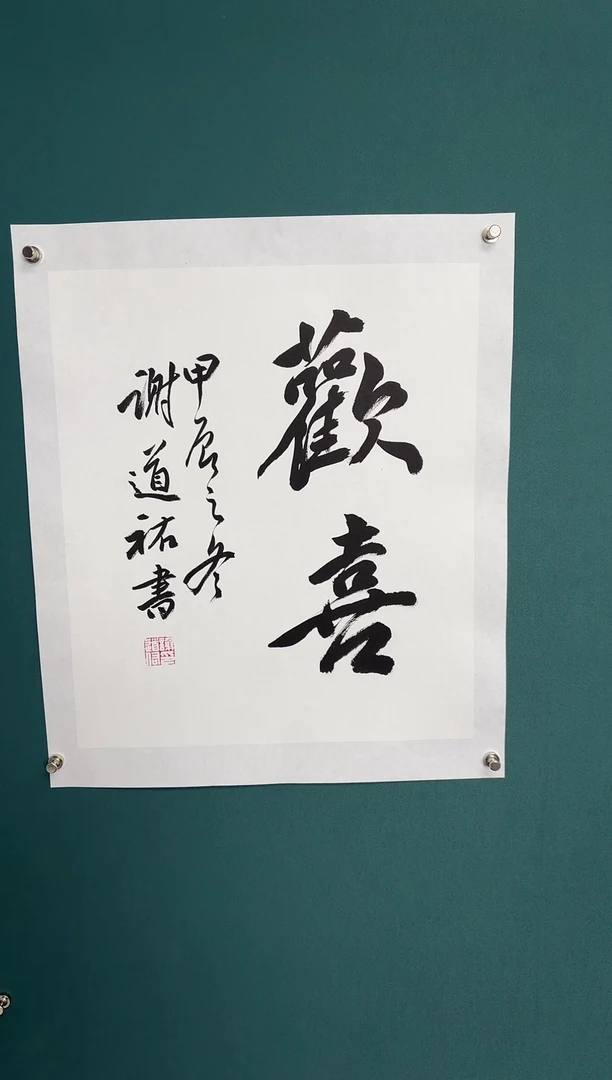 歡喜
甲辰之冬
謝道祐書